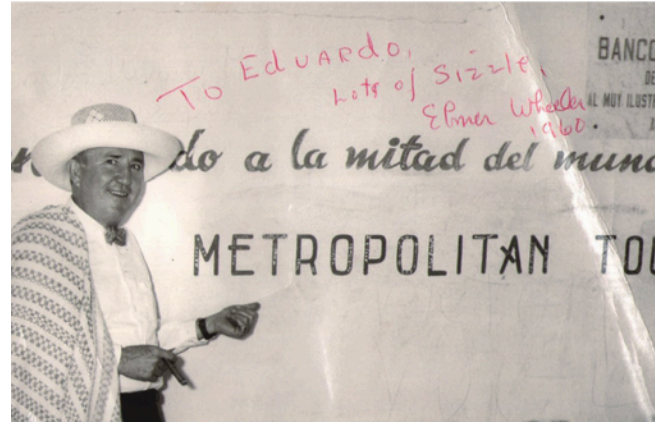 To Eduardo,
Lots of Sizzle,
Elmer Wheeler
1960
BANCO
DE
AL MUY ILUST
do a la mitad del mund
METROPOLITAN TOU